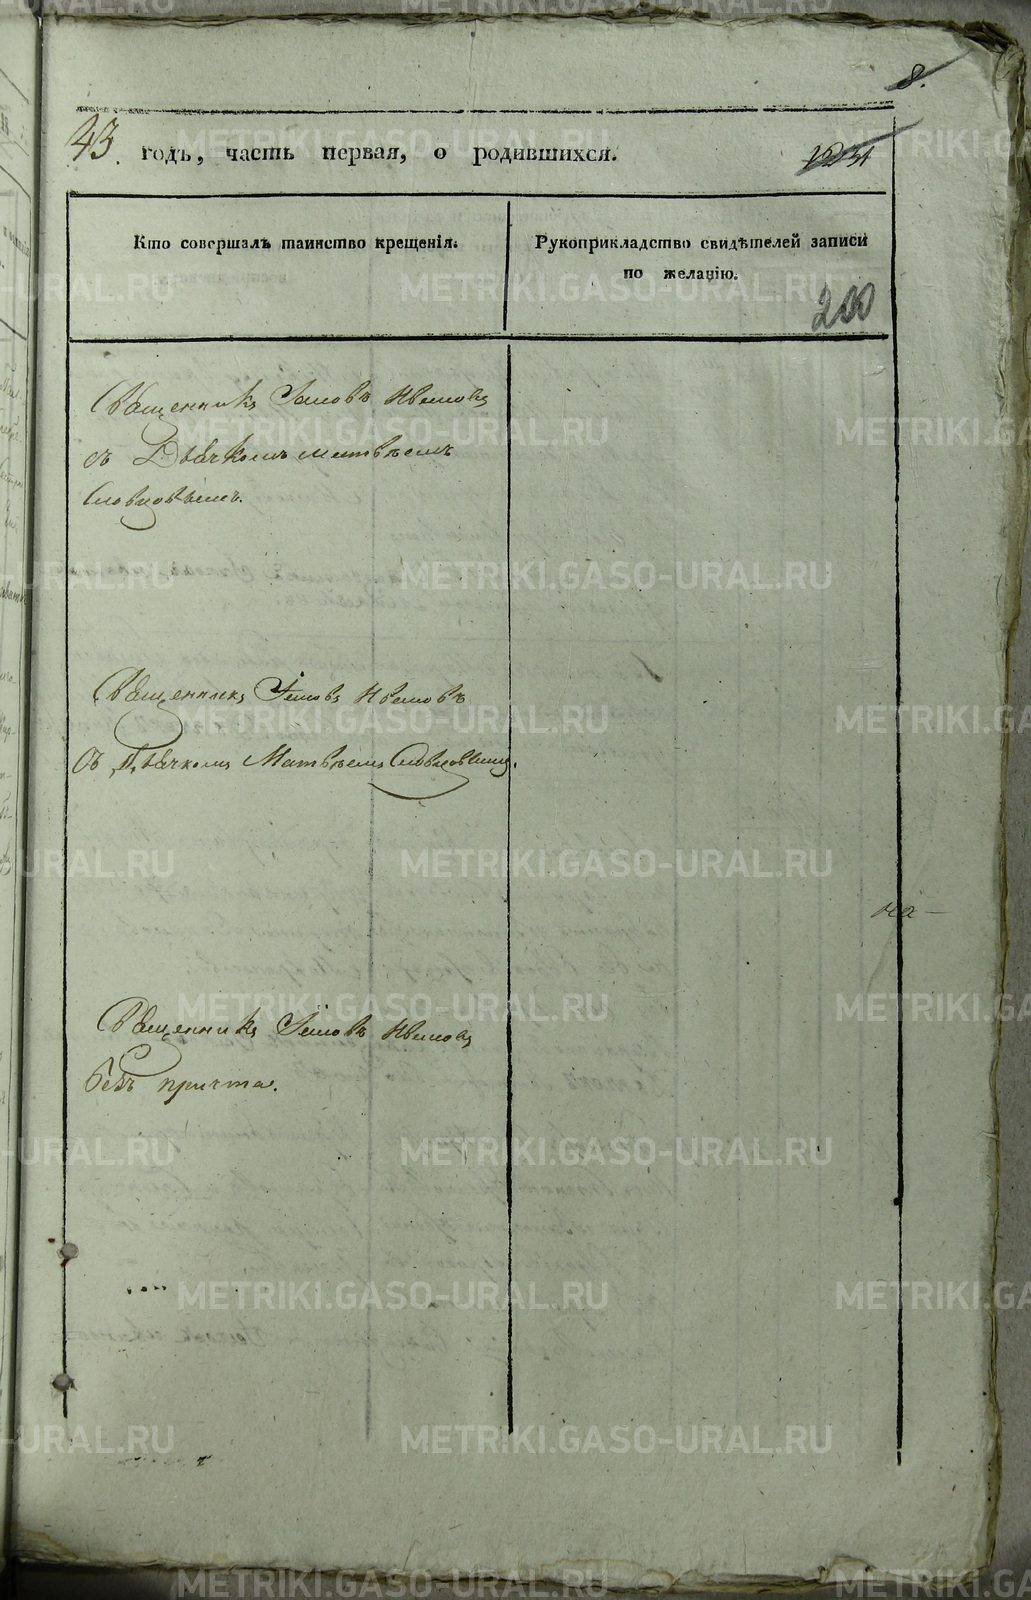 8.
43. годъ, часть первая, о родившихся.
Кто совершалъ таинство крещенія.
Рукоприкладство свидѣтелей записи
по желанію.
200
Священникъ Іаковъ
съ Дьячкомъ Матвѣемъ
Словцовымъ.
Священникъ Іаковъ
Съ Дьячкомъ Матвѣемъ Словцовымъ.
Священникъ Іаковъ
безъ причта.
на-
METRIKI.GASO-URAL.RU